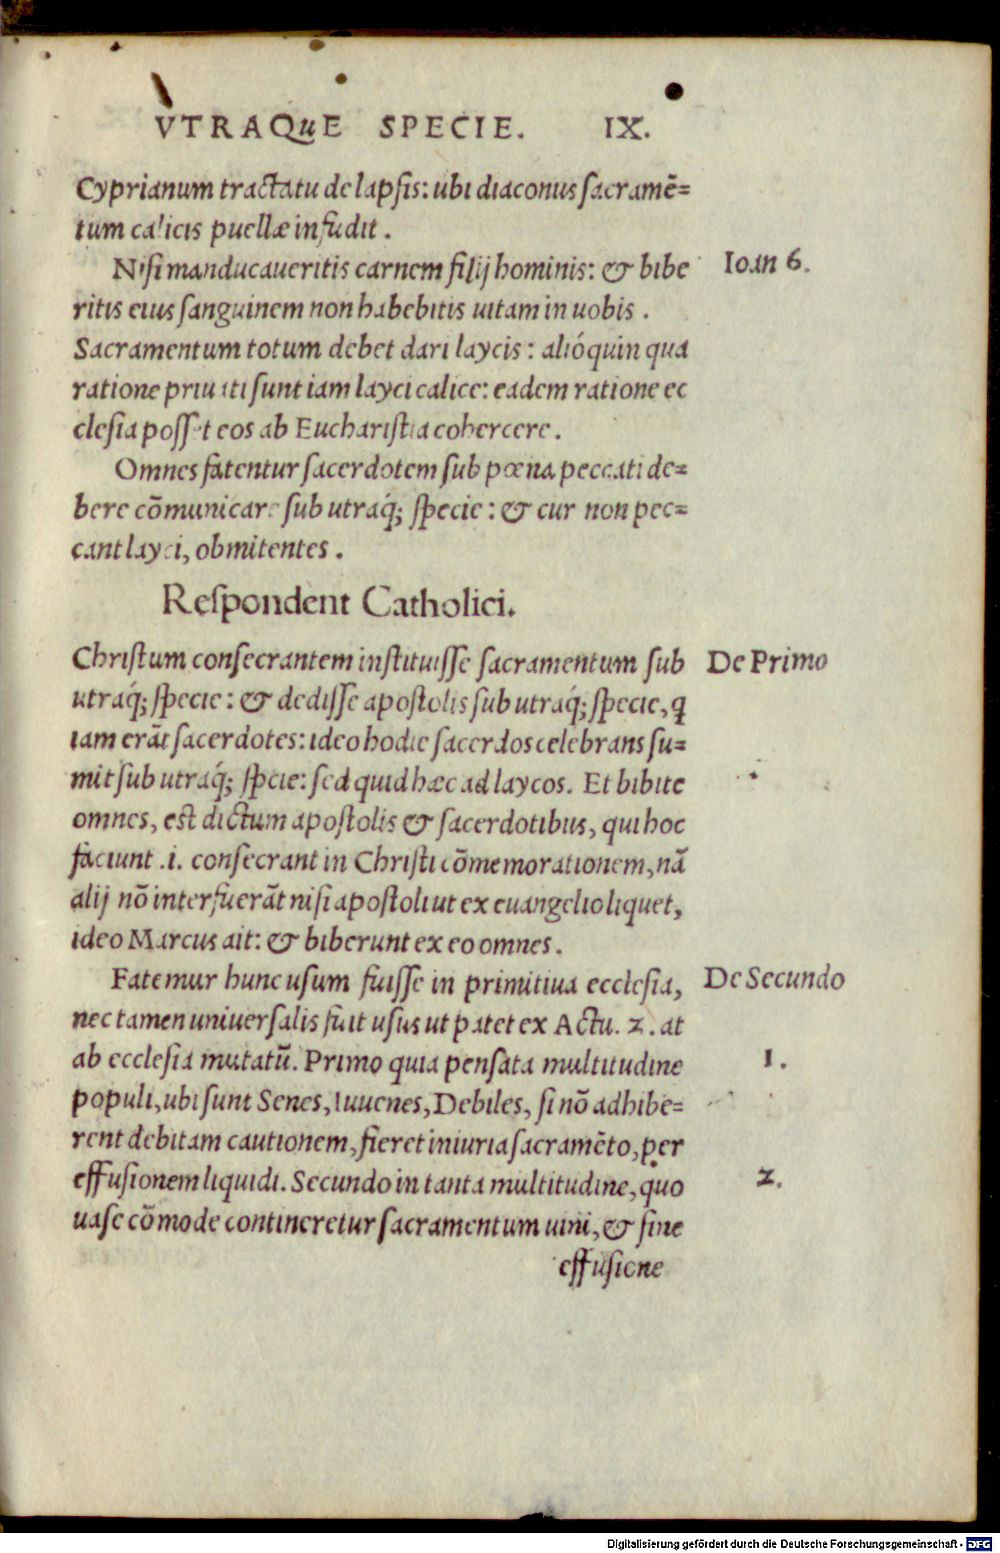 VTRAQuE SPECIE. IX.
Cyprianum tractatu de lapsis: ubi diaconus sacramē=
tum calicis puellæ infudit.
Nisi manducaueritis carnem filij hominis: & bibe
Ioan 6.
ritis eius sanguinem non habebitis uitam in uobis.
Sacramentum totum debet dari laycis: alióquin qua
ratione priuati sunt iam layci calice: eadem ratione ec
clesia posset eos ab Eucharistia cohercere.
Omnes fatentur sacerdotem sub pœna peccati de=
bere cōmunicare sub utraq́; specie: & cur non pec=
cant layci, obmitentes.
Respondent Catholici.
Christum consecrantem instituisse sacramentum sub
De Primo
utraq́; specie: & dedisse apostolis sub utraq́; specie, ꝗ
iam erāt sacerdotes: ideo hodie sacerdos celebrans su=
mit sub utraq́; spcie: sed quid hæc ad laycos. Et bibite
omnes, est dictum apostolis & sacerdotibus, qui hoc
faciunt .i. consecrant in Christi cōmemorationem, nā
alij nō interfuerāt nisi apostoli ut ex euangelio liquet,
ideo Marcus ait: & biberunt ex eo omnes.
Fatemur hunc usum fuisse in primitiua ecclesia,
De Secundo
nec tamen uniuersalis fuit usus ut patet ex Actu. 2. at
ab ecclesia mutatū. Primo quia pensata multitudine
1.
populi, ubi sunt Senes, Iuuenes, Debiles, si nō adhibe=
rent debitam cautionem, fieret iniuria sacramēto, per
effusionem liquidi. Secundo in tanta multitudine, quo
2.
uase cōmode contineretur sacramentum uini, & sine
effusione
Digitalisierung gefördert durch die Deutsche Forschungsgemeinschaft - DFG